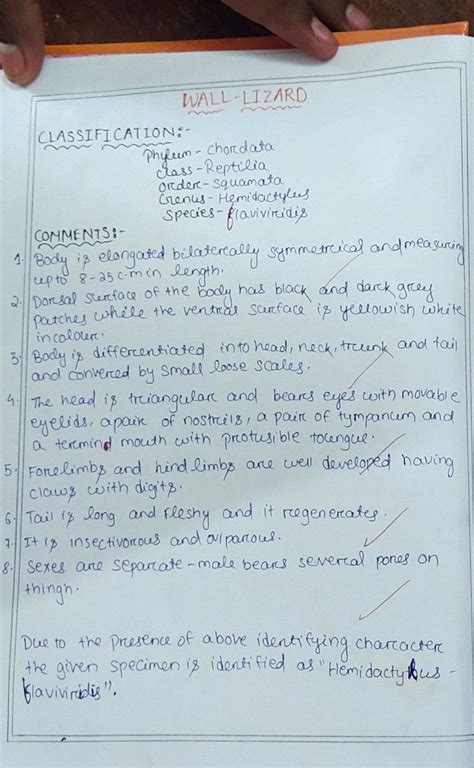 WALL-LIZARD
CLASSIFICATION:-
Phylum - chordata
class - Reptilia
order - squamata
Genus - Hemidactylus
Species - flaviviridis
COMMENTS:-
1. Body is elongated bilaterally symmetrical and measuring
up to 8-25 c.m in length.
2. Dorsal surface of the body has black and dark grey
patches while the ventral surface is yellowish white
in colour.
3. Body is differentiated into head, neck, trunk and tail
and convered by small loose scales.
4. The head is triangular and bears eyes with movable
eyelids, a pair of nostrils, a pair of tympanum and
a termind mouth with protusible tounge.
5. Forelimbs and hind limbs are well developed having
claws with digits.
6. Tail is long and fleshy and it regenerates.
7. It is insectivorous and oviparous.
8. Sexes are separate - male bears several pores on
thingh.
Due to the presence of above identifying character
the given specimen is identified as "Hemidactylus -
flaviviridis".